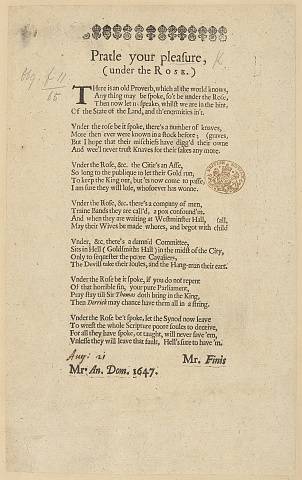 Pratle your pleasure,
(under the ROSE.)
THere is an old Proverb, which all the world knows,
Any thing may be spoke, so't be under the Rose,
Then now let us speake, whilst we are in the hint,
Of the State of the Land, and th'enormities in't.
Vnder the rose be it spoke, there's a number of knaves,
More then ever were known in a State before; (graves,
But I hope that their mischiefs have digg'd their owne
And wee'l never trust Knaves for their sakes any more.
Vnder the Rose, &c. the Citie's an Asse,
So long to the publique to let their Gold run,
To keep the King out, but 'tis now come to passe,
I am sure they will lose, whosoever has wonne.
Vnder the Rose, &c. there's a company of men,
Traine Bands they are call'd, a pox confound'm.
And when they are waiting at Westminster Hall, fall,
May their Wives be made whores, and begot with child
Vnder, &c. there's a damn'd Committee,
Sits in Hell (Goldsmiths Hall) in the midst of the City,
Only to sequester the poore Cavaliers,
The Devill take their soules, and the Hang-man their eares.
Vnder the Rose be it spoke, if you do not repent
Of that horrible sin, your pure Parliament,
Pray stay till Sir Thomas doth bring in the King,
Then Derrick may chance have them all in a string.
Vnder the Rose be't spoke, let the Synod now leave
To wrest the whole Scripture poore soules to deceive,
For all they have spoke, or taught, will never save'em,
Vnlesse they will leave that fault, Hell's sure to have'm.
Aug: 21 Mr. Finis
Mr. An. Dom. 1647.